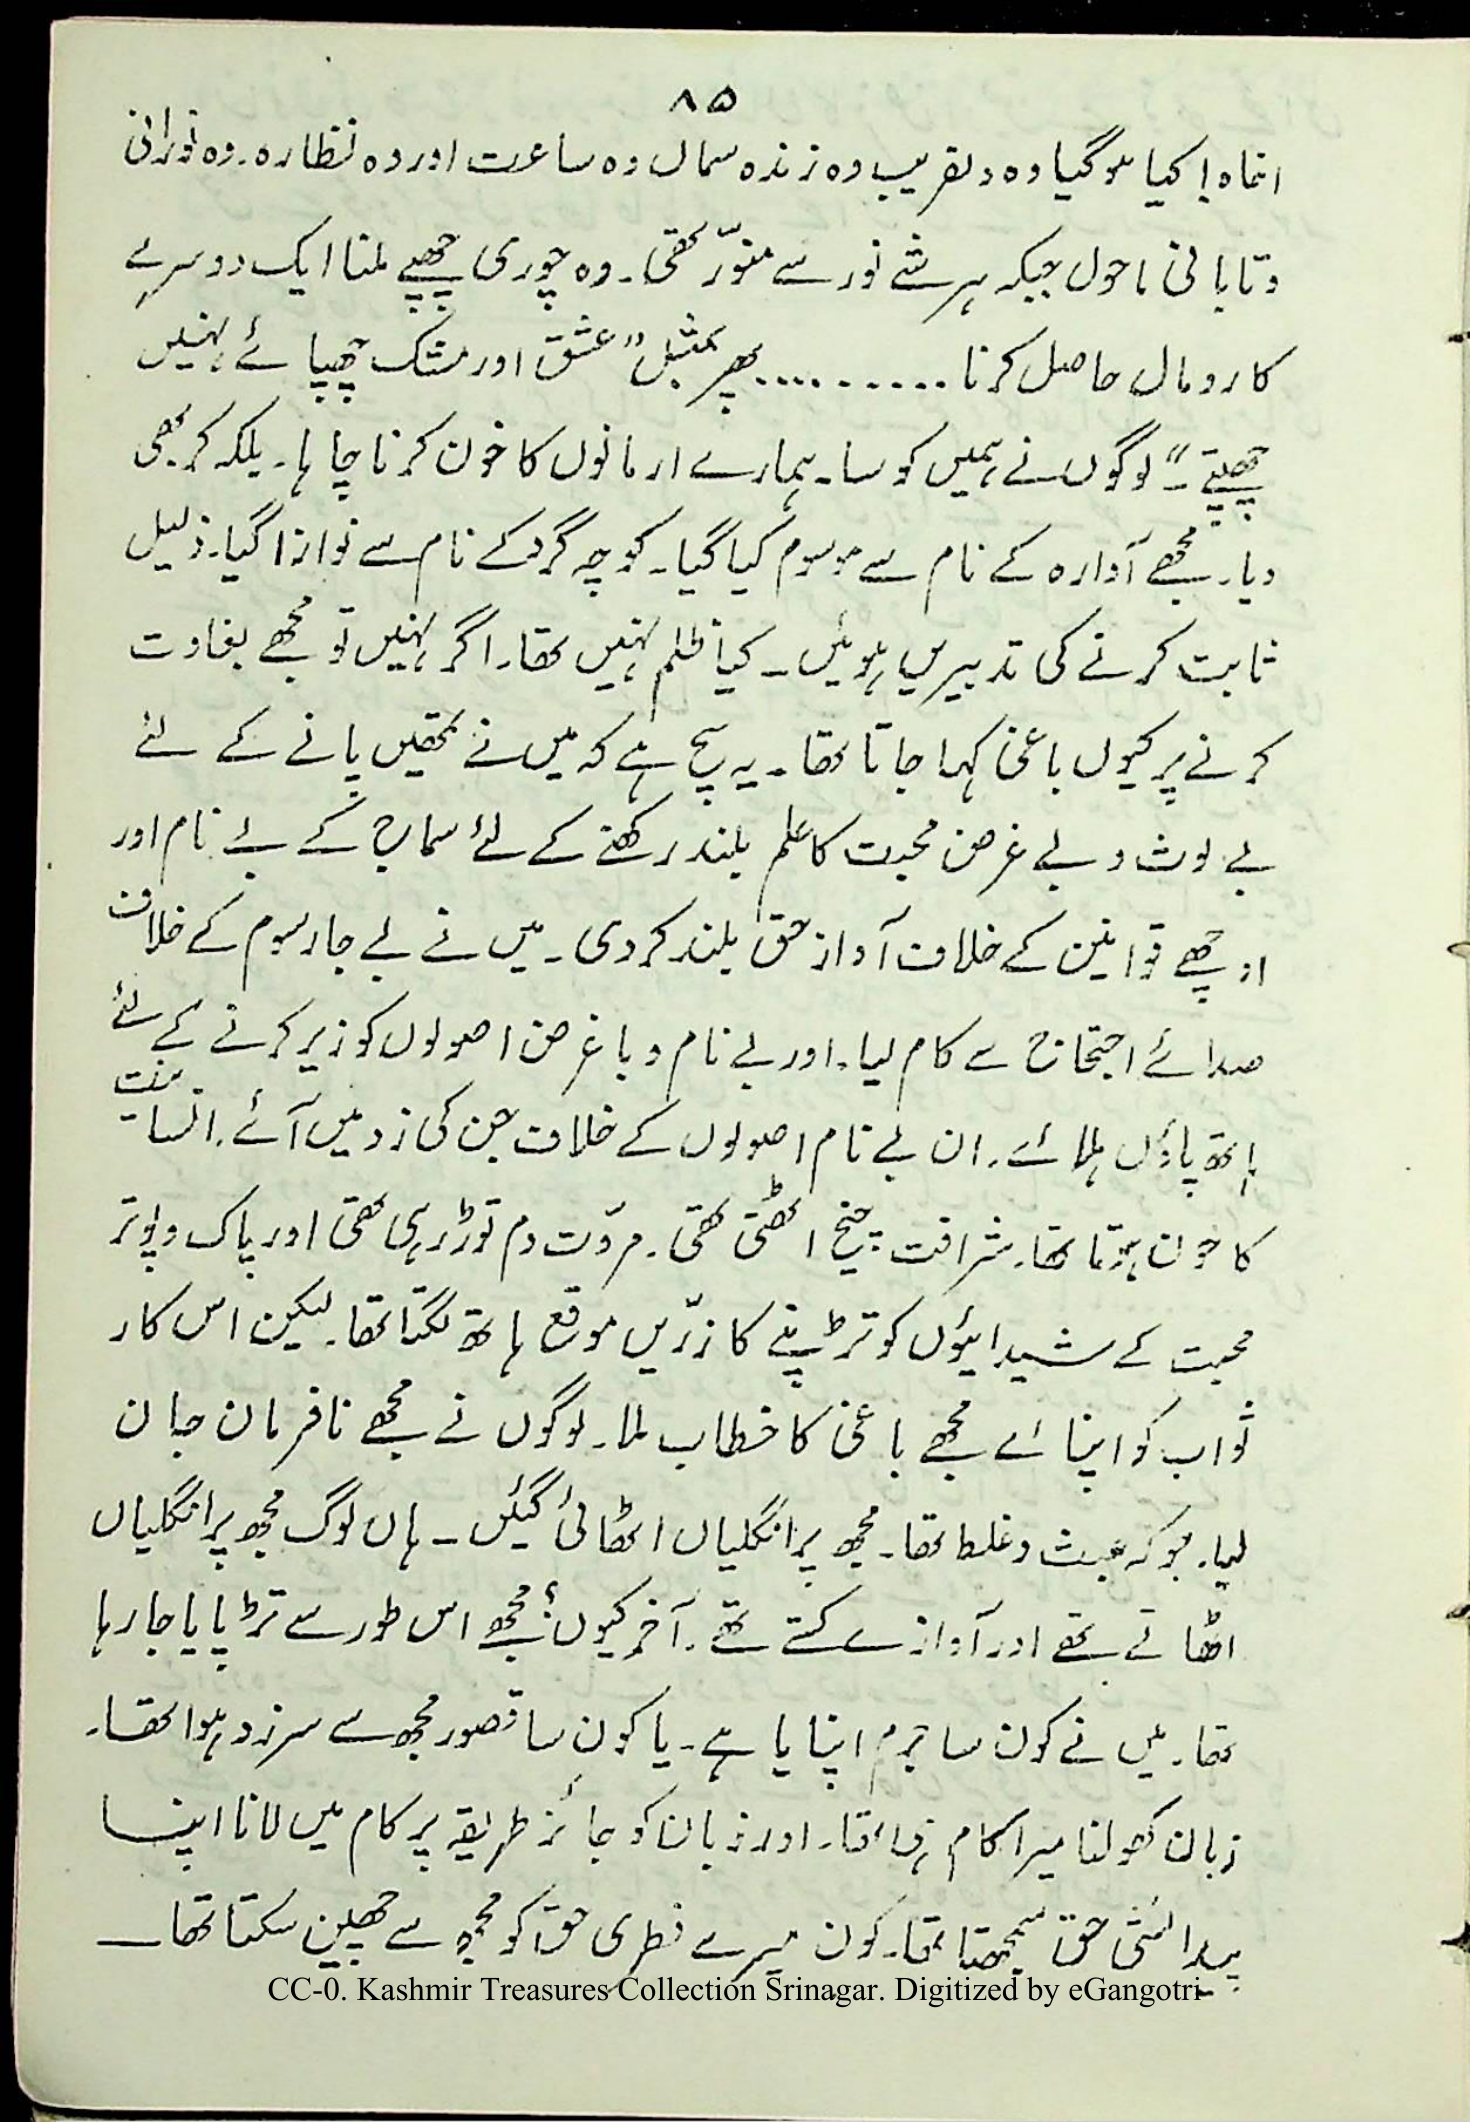 ۸۵
اتھاہ! کیا ہوگیا وہ دلفریب وہ زندہ سماں وہ ساعت اور وہ نظارہ۔ وہ نورانی
وتابانی ماحول جبکہ ہر شے نور سے منوّر تھی۔ وہ چوری چھپے ملنا ایک دوسرے
کا رومال حاصل کرنا .......... پھر بمثل "عشق اور مشک چھپائے نہیں
چھپتے۔" لوگوں نے ہمیں کوسا۔ ہمارے ارمانوں کا خون کرنا چاہا۔ بلکہ کر بھی
دیا۔ مجھے آوارہ کے نام سے موسوم کیا گیا۔ کوچہ گرد کے نام سے نوازا گیا۔ ذلیل
ثابت کرنے کی تدبیریں ہوئیں۔ کیا ظلم نہیں تھا۔ اگر نہیں تو مجھے بغاوت
کرنے پر کیوں باغی کہا جاتا تھا۔ یہ سچ ہے کہ میں نے تمھیں پانے کے لئے
بے لوث و بے غرض محبت کا علم بلند رکھنے کے لئے سماج کے بے نام اور
اوچھے قوانین کے خلاف آواز حق بلند کردی۔ میں نے بے جا رسوم کے خلاف
صدائے احتجاج سے کام لیا۔ اور بے نام و باغرض اصولوں کو زیر کرنے کے لئے
ہاتھ پاؤں ہلائے۔ ان بے نام اصولوں کے خلاف جن کی زد میں آئے۔ انسانیت
کا خون ہوتا تھا۔ شرافت چیخ اٹھتی تھی۔ مروّت دم توڑ رہی تھی اور پاک و پوتر
محبت کے شیدائیوں کو تڑپنے کا زرّیں موقع ہاتھ لگتا تھا۔ لیکن اس کار
ثواب کو اپنائے مجھے باغی کا خطاب ملا۔ لوگوں نے مجھے نافرمان جان
لیا۔ جو کہ عبث و غلط تھا۔ مجھ پر انگلیاں اٹھائی گئیں۔ ہاں لوگ مجھ پر انگلیاں
اٹھاتے تھے اور آوازے کستے تھے۔ آخر کیوں؟ مجھے اس طور سے تڑپایا جا رہا
تھا۔ میں نے کون سا جرم اپنایا ہے۔ یا کون سا قصور مجھ سے سرزد ہوا تھا۔
زبان کھولنا میرا کام تھا۔ اور زبان کو جائز طریقہ پر کام میں لانا اپنا
پیدائشی حق سمجھتا تھا۔ کون میرے فطری حق کو مجھ سے چھین سکتا تھا۔
CC-0. Kashmir Treasures Collection Srinagar. Digitized by eGangotri